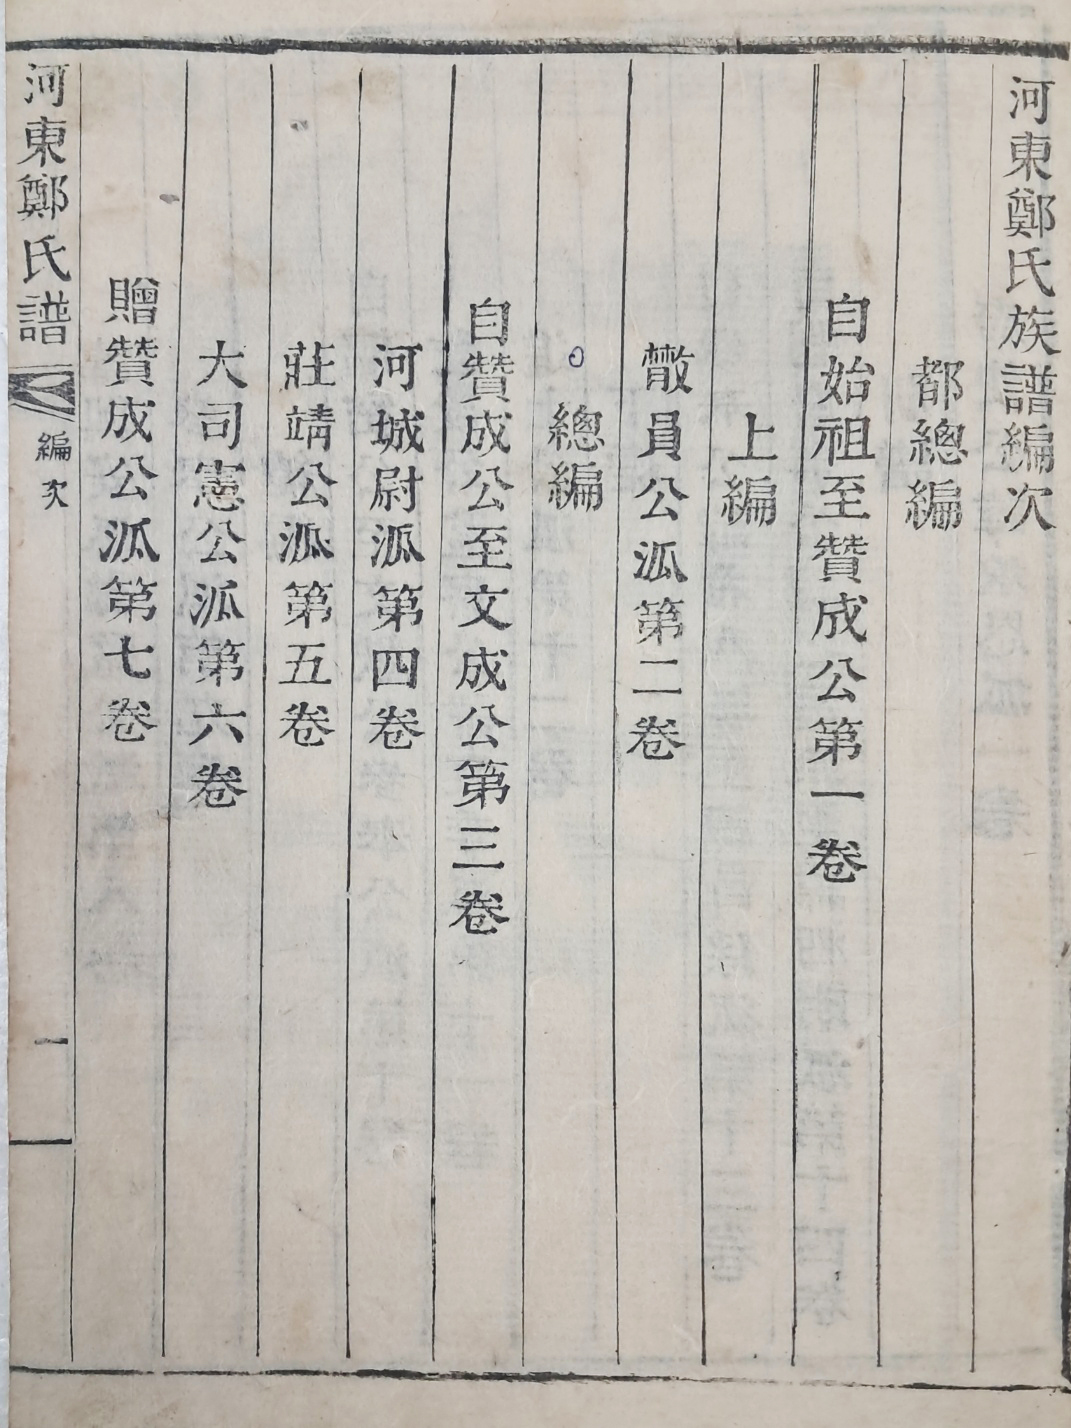 河東鄭氏族譜編次
都總編
自始祖至贊成公第一卷
上編
員公派第二卷
總編
自贊成公至文成公第三卷
河城尉派第四卷
莊靖公派第五卷
大司憲公派第六卷
贈贊成公派第七卷
河東鄭氏譜
編次
一